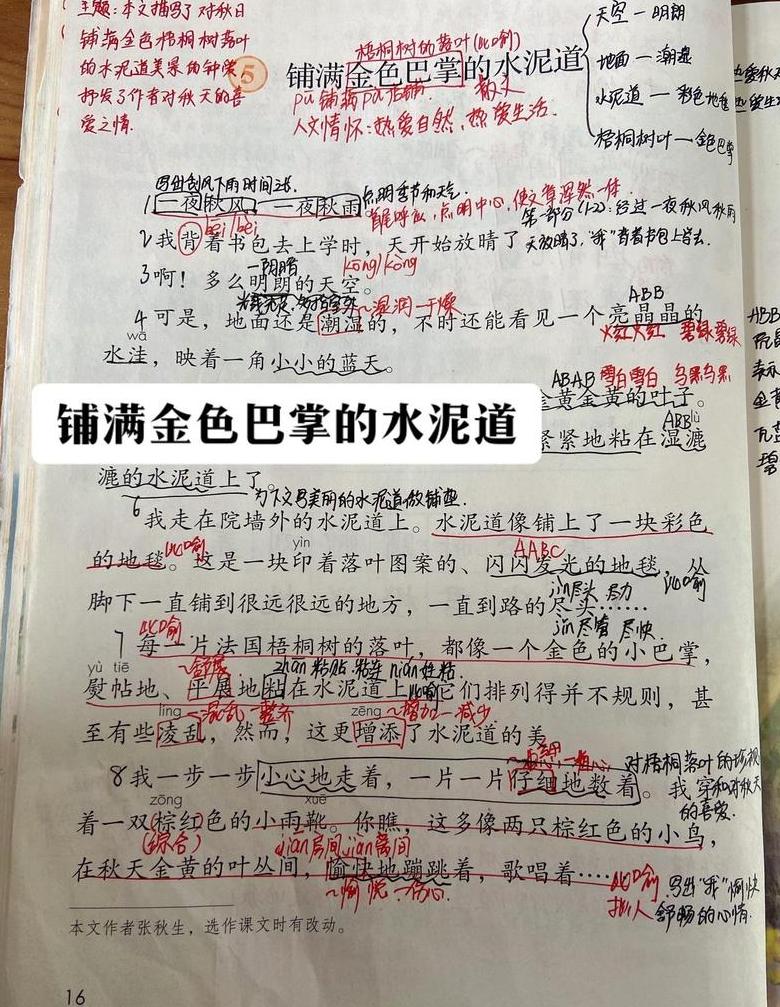 主题:本文描写了对秋日
铺满金色梧桐树落叶
的水泥道美景的钟爱
抒发了作者对秋天的喜
爱之情.
梧桐树的落叶(比喻)
5 铺满金色巴掌的水泥道
pū 铺满 pù 店铺 散文
人文情怀:热爱自然,热爱生活.
天空一明朗
地面一潮湿
水泥道一彩色地毯
梧桐树叶一金色巴掌
热爱秋天
热爱生活
写出刮风下雨时间之长.
点明季节和天气
1 一夜秋风,一夜秋雨。
首尾呼应,点明中心,使文章浑然一体.
bēi/bèi
第一部分(1-2):经过一夜秋风秋雨
2 我背着书包去上学时,天开始放晴了
天放晴了,“我”背着书包上学去.
一阴暗 kōng/kòng
3 啊!多么明朗的天空。
~湿润一干燥
ABB
4 可是,地面还是潮湿的,不时还能看见一个亮晶晶的
火红火红 碧绿碧绿
wā
水洼,映着一角小小的蓝天。
ABAB 雪白雪白 乌黑乌黑
金黄金黄的叶子。
铺满金色巴掌的水泥道
ABB lù
紧紧地粘在湿漉
漉的水泥道上了。
为下文写美丽的水泥道做铺垫.
6 我走在院墙外的水泥道上。水泥道像铺上了一块彩色
比喻 yìn AABC
的地毯。这是一块印着落叶图案的、闪闪发光的地毯,从
jìn尽头 尽力 比喻
脚下一直铺到很远很远的地方,一直到路的尽头……
比喻 jǐn 尽管 尽快.
7 每一片法国梧桐树的落叶,都像一个金色的小巴掌,
yù tiē ~舒展 zhān 粘贴 粘连 nián 性粘.
熨帖地、平展地粘在水泥道上。它们排列得并不规则,甚
líng ~混乱一整齐 zēng ~增加一减少
至有些凌乱,然而,这更增添了水泥道的美。
~粗心 对梧桐落叶的珍视
8 我一步一步小心地走着,一片一片仔细地数着。我穿
和对秋天的喜爱.
zōng xuē
着一双棕红色的小雨靴。你瞧,这多像两只棕红色的小鸟,
(综合) jiān 房间 jiàn 间
在秋天金黄的叶丛间,愉快地蹦跳着,歌唱着……
~愉悦一伤心.
比喻
拟人
写出“我”愉快
舒畅的心情.
本文作者张秋生,选作课文时有改动。
16